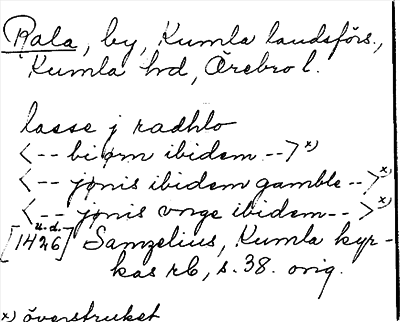 Rala, by, Kumla landsförs.,
Kumla hd, Örebro l.
lasse j radhlo
<-- biørn ibidem -->x)
<-- jønis ibidem gamble -->x)
<-- jønis vnge ibidem -->x)
[1426] u.d. Samzelius, Kumla kyr-
kas rb, s. 38. orig.
x) överstruket